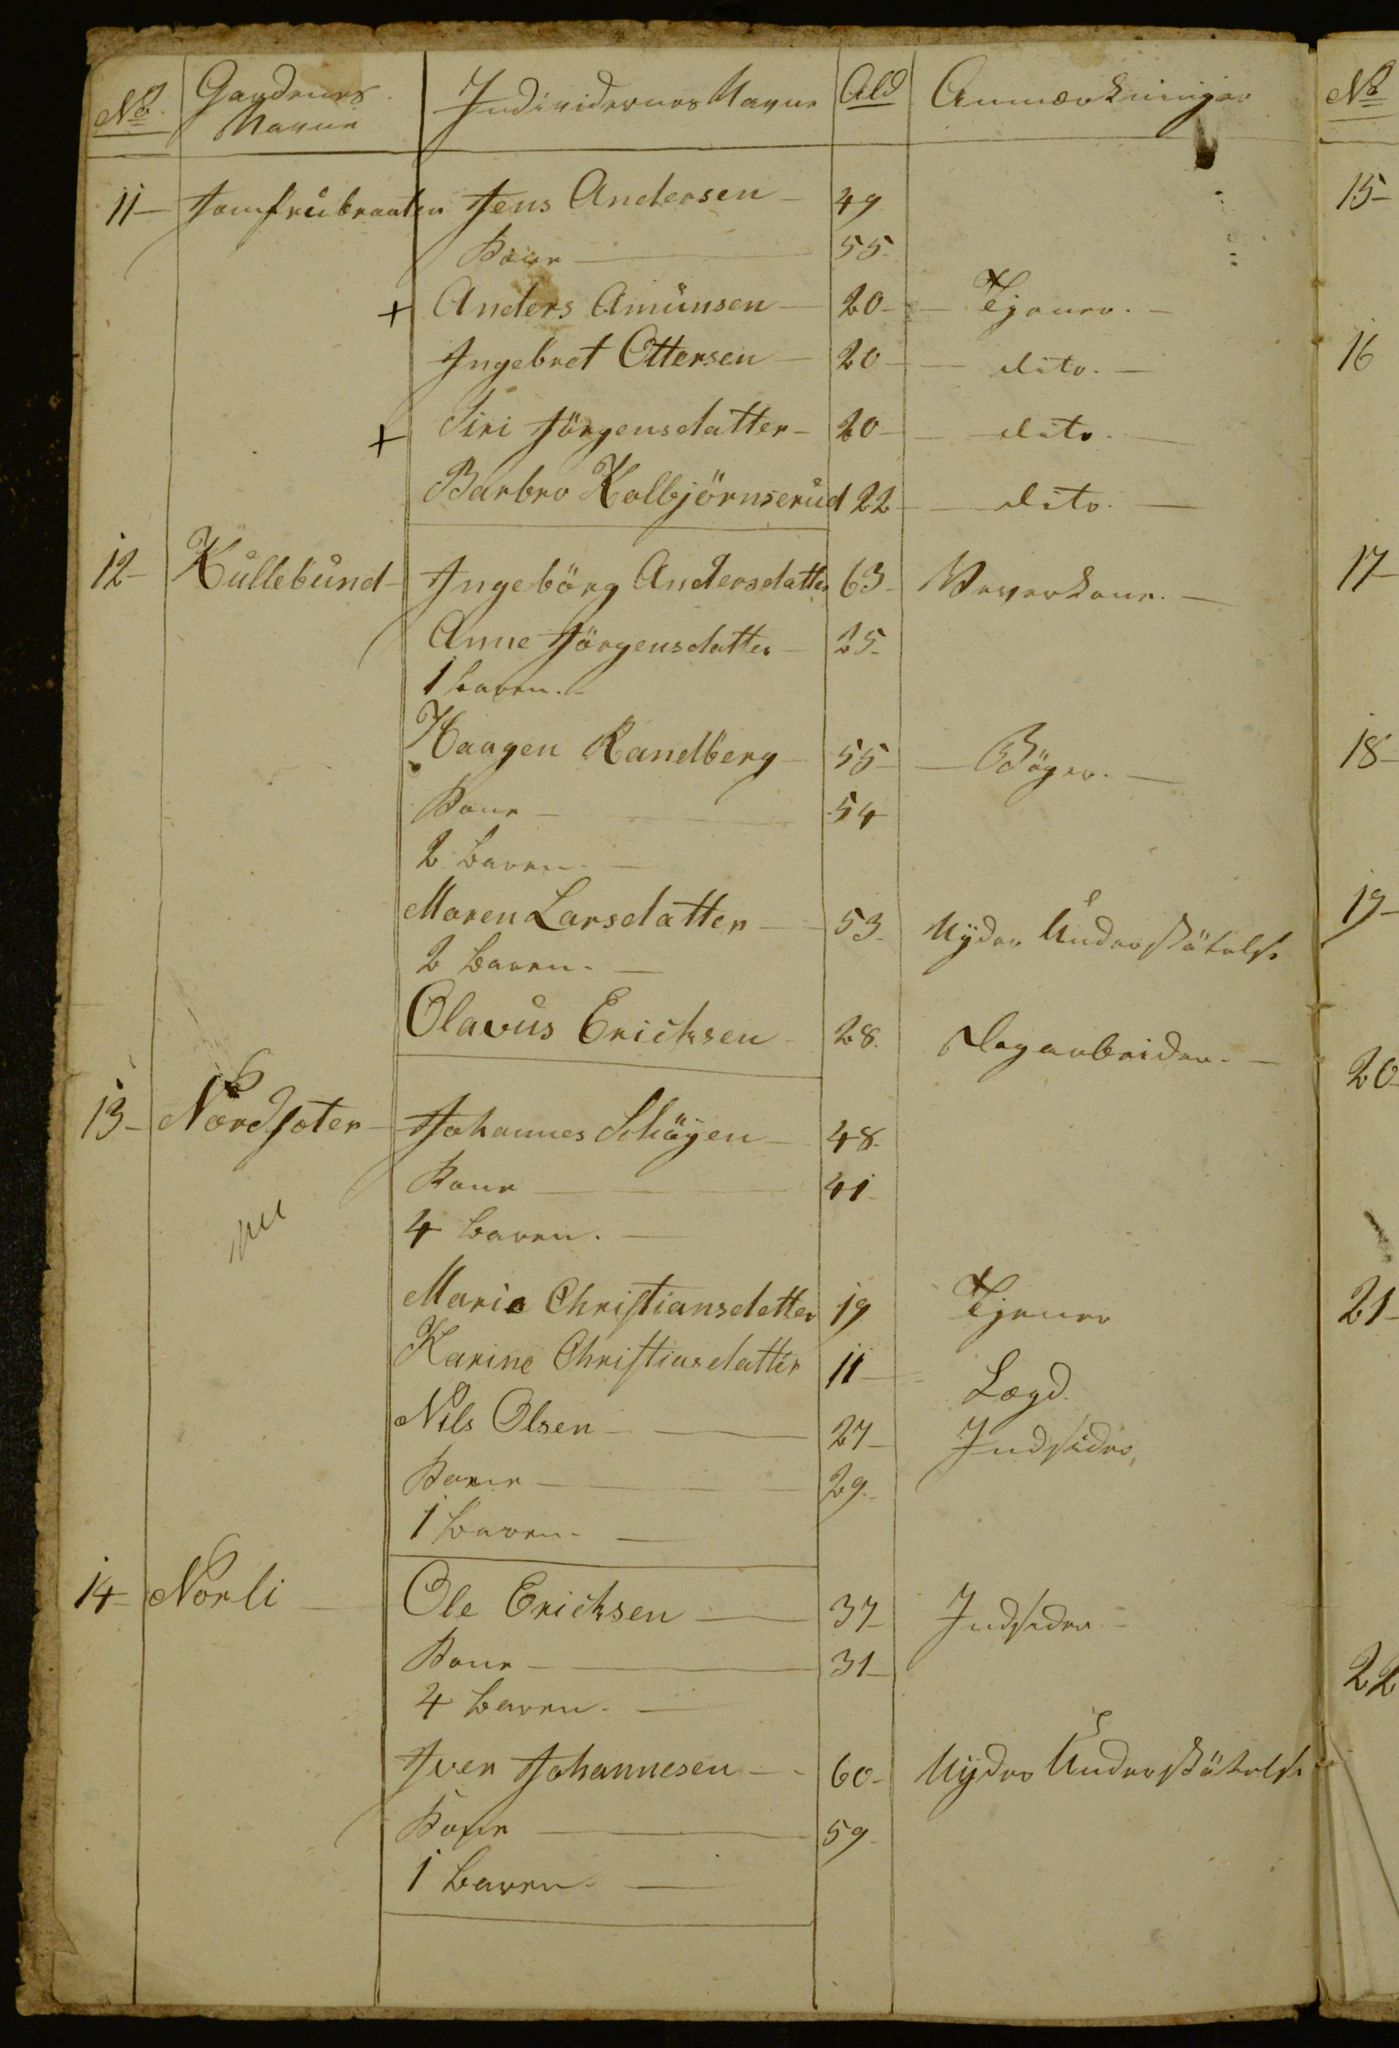 No. Gaardenes Navne Individernes Navne Ald Anmærkninger
11 – Jomfrubraaten Jens Andersen – 49
Kone – 55.
+ Anders Amünsen – 20 – Tjener. –
Ingebret Ottersen – 20 – dito. –
+ Siri Jörgensdatter – 20 – dito. –
Barbro Kolbjörnserud 22 – dito. –
12 – Kullebund – Ingebörg Andersdatter 63 – Væverkone. –
Anne Jörgensdatter – 25 –
1 barn. –
Haagen Randberg – 55 – Böger. –
Kone – 54
2 barn. –
Maren Larsdatter – 53 – Nyder Understötelse
2 barn. –
Olavus Ericksen – 28. Dagarbeider. –
13 – Nordsæter – Johannes Schöyen – 48.
Kone – 41 –
4 barn. –
Marie Christiansdatter 19 Tjener
Karine Christiasdatter 11 – Lægd.
Nils Olsen – 27 – Indsider,
Kone – 29. –
1 barn. –
14 – Norli – Ole Ericksen – 37 – Indsider –
Kone – 31 –
4 barn. –
Iver Johannesen – 60 – Nyder Understötelse
Kone – 59 –
1 barn. –
No
15 –
16
17 –
18 –
19 –
20
21 –
22